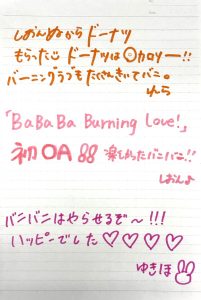 しおんぬからドーナツ
もらった☺ ドーナツは〇カロリー!!
バーニングラブもたくさんきいてバニ。
わら
「BaBaBa Burning Love!」
初OA!! 楽しかったバニバニ!!
しおん♪
バニバニはやらせるぞ〜!!!
ハッピーでした♡♡♡♡
ゆきほ